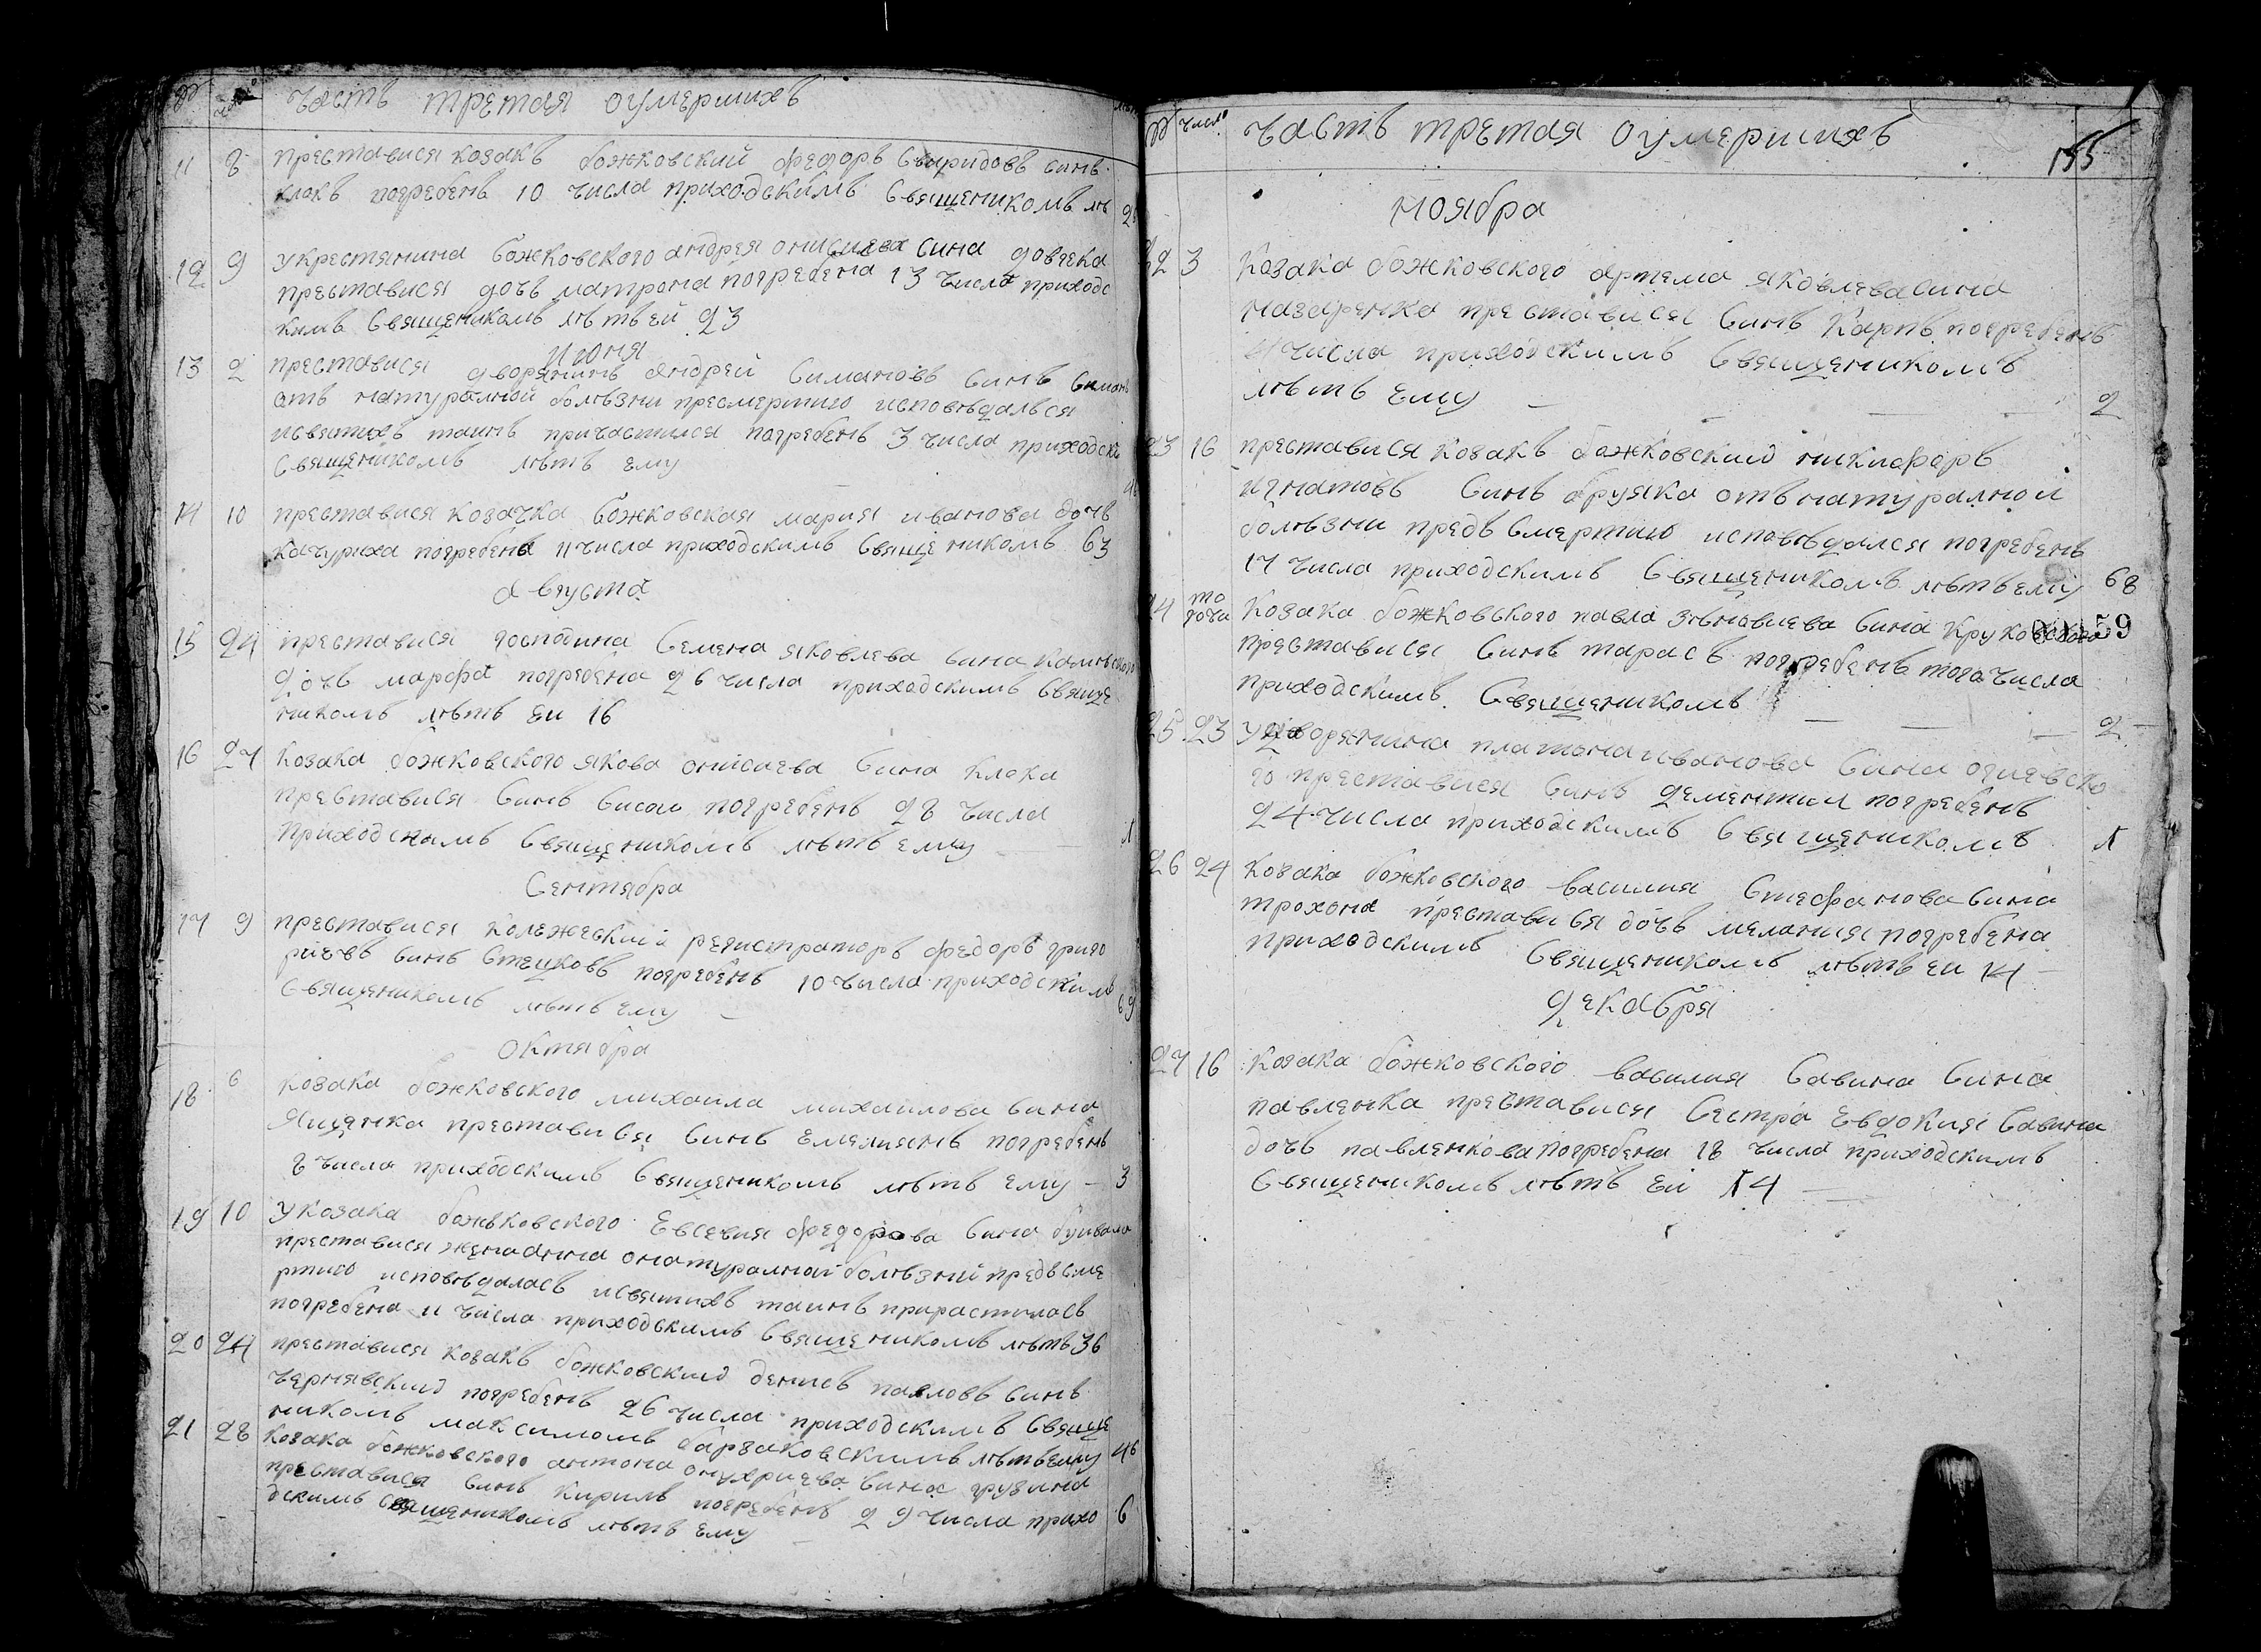 № число часть третая оумершихъ
11 8 преставися козакъ божковский федоръ Свиридовъ синъ
клокъ погребенъ 10 числа приходскимъ Священикомъ лѣ
12 9 укрестянина божковского андрея онисиева сина довгека
преставися дочъ матрона погребена 13 числа приходс
кимъ Священикомъ лѣтъ ей 23
Июня
13 2 преставися дворянинъ андрей Симановъ синъ Симан
отъ натуралной болѣзни предсмертию исповѣдалься
исвятихъ таинъ причастился погребенъ 3 числа приходски
Священикомъ лѣтъ ему
14 10 преставися козачка божковская мария иванова дочъ
качуриха погребена 11 числа приходскимъ Священикомъ 63
августа
15 24 преставися господина Семена яковлева сина
дочъ марфа погребена 26 числа приходскимъ Свяще
никомъ лѣтъ еи 16
16 27 козака божковского якова онисиева сина клока
преставися синъ Сисои погребенъ 28 числа
приходскимъ Священикомъ лѣтъ ему 1
Сентября
17 9 преставися колежский регистраторъ федоръ григо
риевъ синъ Стешковъ погребенъ 10 числа приходскимъ
Священикомъ лѣтъ ему 69
октября
18 6 козака божковского михаила михаилова сина
Яценка преставися синъ Емелиянъ погребенъ
8 числа приходскимъ Священикомъ лѣтъ ему 3
19 10 укозака божковского Евсевия федорова сина
преставися жена анна онатуралной болѣзни предъ сме
ртию исповѣдалась исвятихъ таинъ причастилась
погребена 11 числа приходскимъ Священикомъ лѣтъ 36
20 24 преставися козакъ божковский денисъ павловъ синъ
чернявский погребенъ 26 числа приходскимъ Свяще
никомъ максимомъ барзаковскимъ лѣтъ ему 46
21 28 козака божковского антона онуфриева сина грузина
преставися синъ кирилъ погребенъ 29 числа прихо
дскимъ Священикомъ лѣтъ ему 6
№ число часть третая оумершихъ 155
ноября
22 3 козака божковского артема яковлева сина
назаренка преставися синъ карпъ погребенъ
4 числа приходскимъ Священикомъ
лѣтъ ему 2
23 16 преставися козакъ божковский никифоръ
игнатовъ синъ бруяка отъ натуралной
болѣзни предъ смертию исповѣдался погребенъ
17 числа приходскимъ Священикомъ лѣтъ ему 68
24 то гочи козака божковского павла зѣновиева сина круковского
59
преставися синъ тарасъ погребенъ того числа
приходскимъ Священикомъ 2
25 23 у дворянина платона иванова сина огиевско
го преставися синъ дементии погребенъ
24 числа приходскимъ Священикомъ 1
26 24 козака божковского василия Стефанова сина
трохона преставися дочъ мелания погребена
приходскимъ Священикомъ лѣтъ еи 14
декабря
27 16 козака божковского василия Савина сина
павленка преставися Сестра Евдокия Савина
дочъ павленкова погребена 18 числа приходскимъ
Священикомъ лѣтъ еи 14